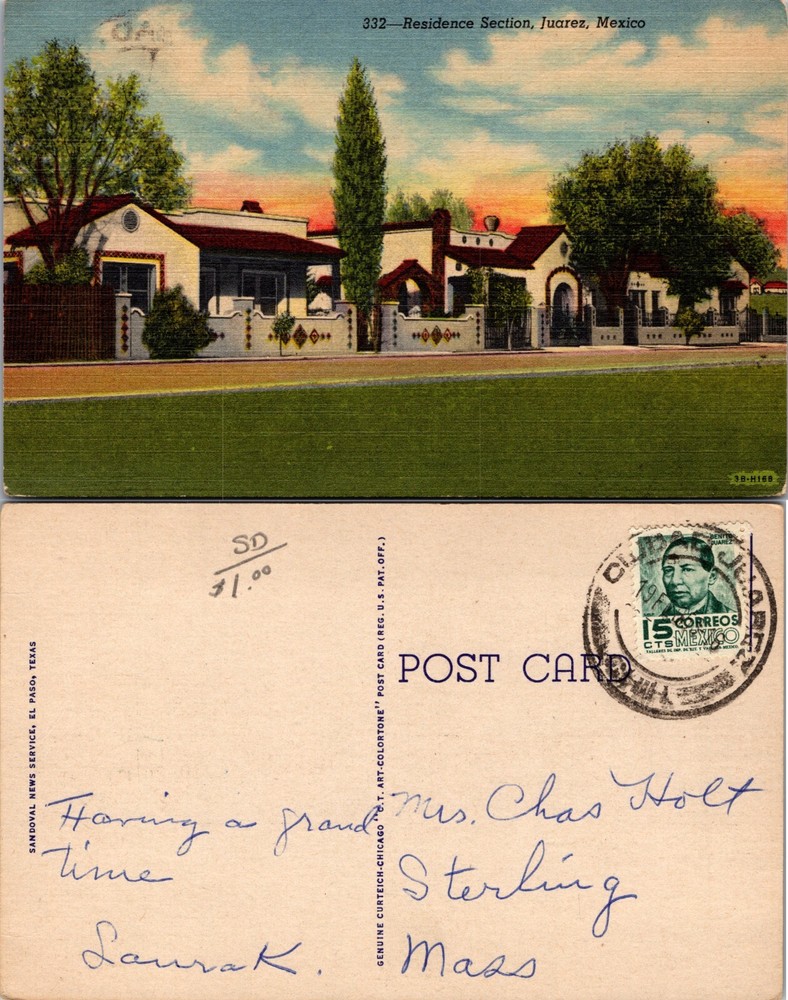 332—Residence Section, Juarez, Mexico
3B-H168
SD
$1.00
SANDOVAL NEWS SERVICE, EL PASO, TEXAS
GENUINE CURTEICH-CHICAGO "C.T. ART-COLORTONE" POST CARD (REG. U.S. PAT. OFF.)
POST CARD
BENITO
JUAREZ
15 CORREOS
CTS MEXICO
CIUDAD JUAREZ
Having a grand
time
Laura K.
Mrs. Chas Holt
Sterling
Mass